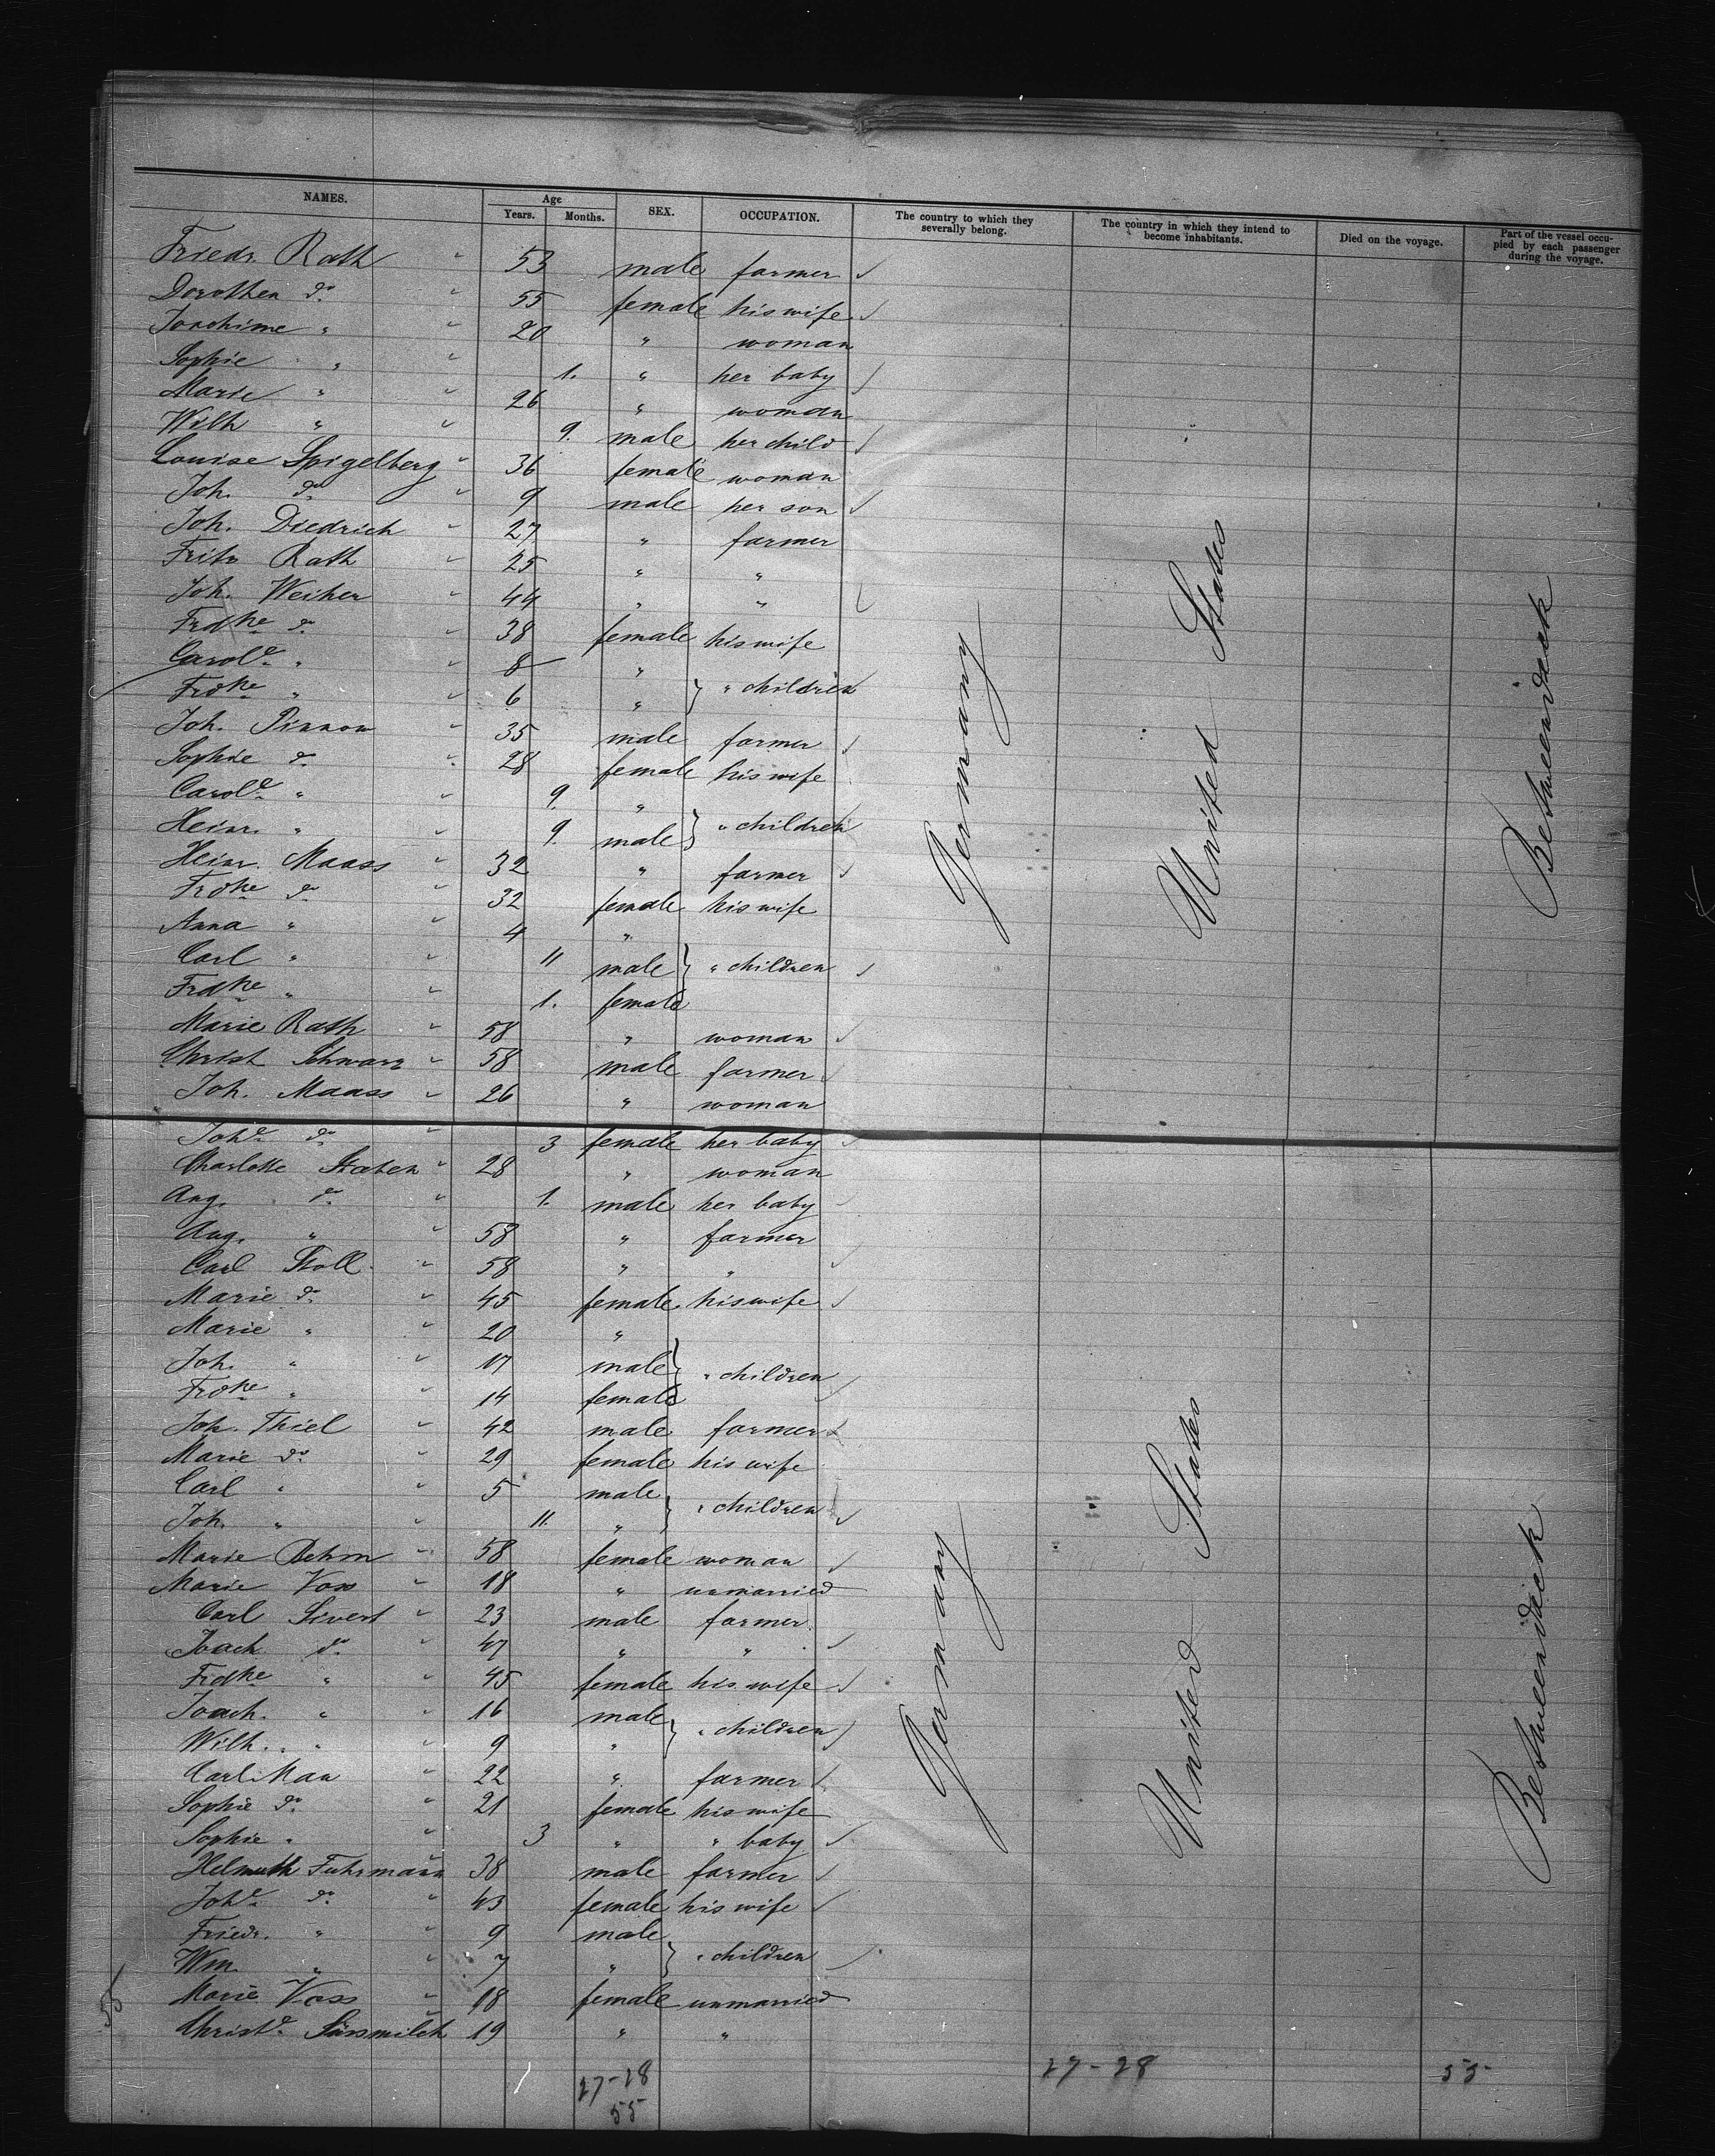 NAMES. Age Years. Months. SEX. OCCUPATION. The country to which they severally belong. The country in which they intend to become inhabitants. Died on the voyage. Part of the vessel occupied by each passenger during the voyage.
Friedr. Rath " 53 male farmer
Dorothea do " 55 female his wife
Joachime " " 20 " woman
Sophie " " 1. " her baby
Marie " " 26 " woman
Wilh " " 9. male her child
Louise Spigelberg " 36 female woman
Joh. do " 9 male her son
Joh. Diedrich " 27 " farmer
Fritz Rath " 25 " "
Joh. Weiher " 44 " "
Frdke do " 38 female his wife
Carole " " 8 "
Frdke " " 6 " } " children
Joh. Pinnow " 35 male farmer
Sophie do " 28 female his wife
Carole " " 9. "
Heinr. " " 9. male } " children
Heinr. Maass " 32 " farmer
Frdke do " 32 female his wife
Anna " " 4 "
Carl " " 11 male } " children
Frdke " " 1. female
Marie Rath " 58 " woman
Christ Schwarz " 58 male farmer
Joh. Maass " 26 " woman
Johe do " 3 female her baby
Charlotte Staben " 28 " woman
Aug. do " 1. male her baby
Aug. " " 58 " farmer
Carl Stoll " 58 " "
Marie do " 45 female his wife
Marie " " 20 "
Joh. " " 17 male } " children
Frdke " " 14 female
Joh. Thiel " 42 male farmer
Marie do " 29 female his wife
Carl " " 5 male
Joh. " " 11. " } " children
Marie Behm " 58 female woman
Marie Voss " 18 " unmarried
Carl Sivert " 23 male farmer
Joach do " 47 " "
Frdke " " 45 female his wife
Joach. " " 16 male
Wilh. " " 9 " } " children
Carl Mau " 22 " farmer
Sophie do " 21 female his wife
Sophie " " 3 " " baby
Helmuth Fuhrmann 38 male farmer
Johe do " 43 female his wife
Friedr. " " 9 male
Wm. " " 7 " } " children
Marie Voss " 18 female unmarried
Christe Süssmilch 19 " "
Germany
United States
Betweendeck
Germany
United States
Betweendeck
55
27-28
55
27-28
55